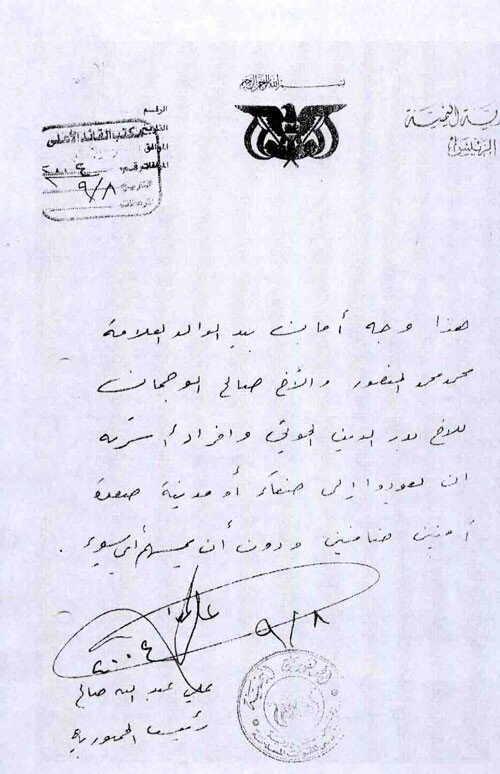 بسم الله الرحمن الرحيم
الرئيس
الرقم
التاريخ
مكتب القائد الأعلى
٩/٨
هذا وجه أمان بيد الوالد العلامة
محمد محمد المنصور والأخ صالح الوجمان
للاخ بدر الدين الحوثي وافراد أسرته
ان يعودوا إلى صنعاء أو مدينة صعدة
آمنين ضامنين ودون أن يمسهم أي سوء .
٩/٨
٢٠٠٤
علي عبد الله صالح
رئيس الجمهورية